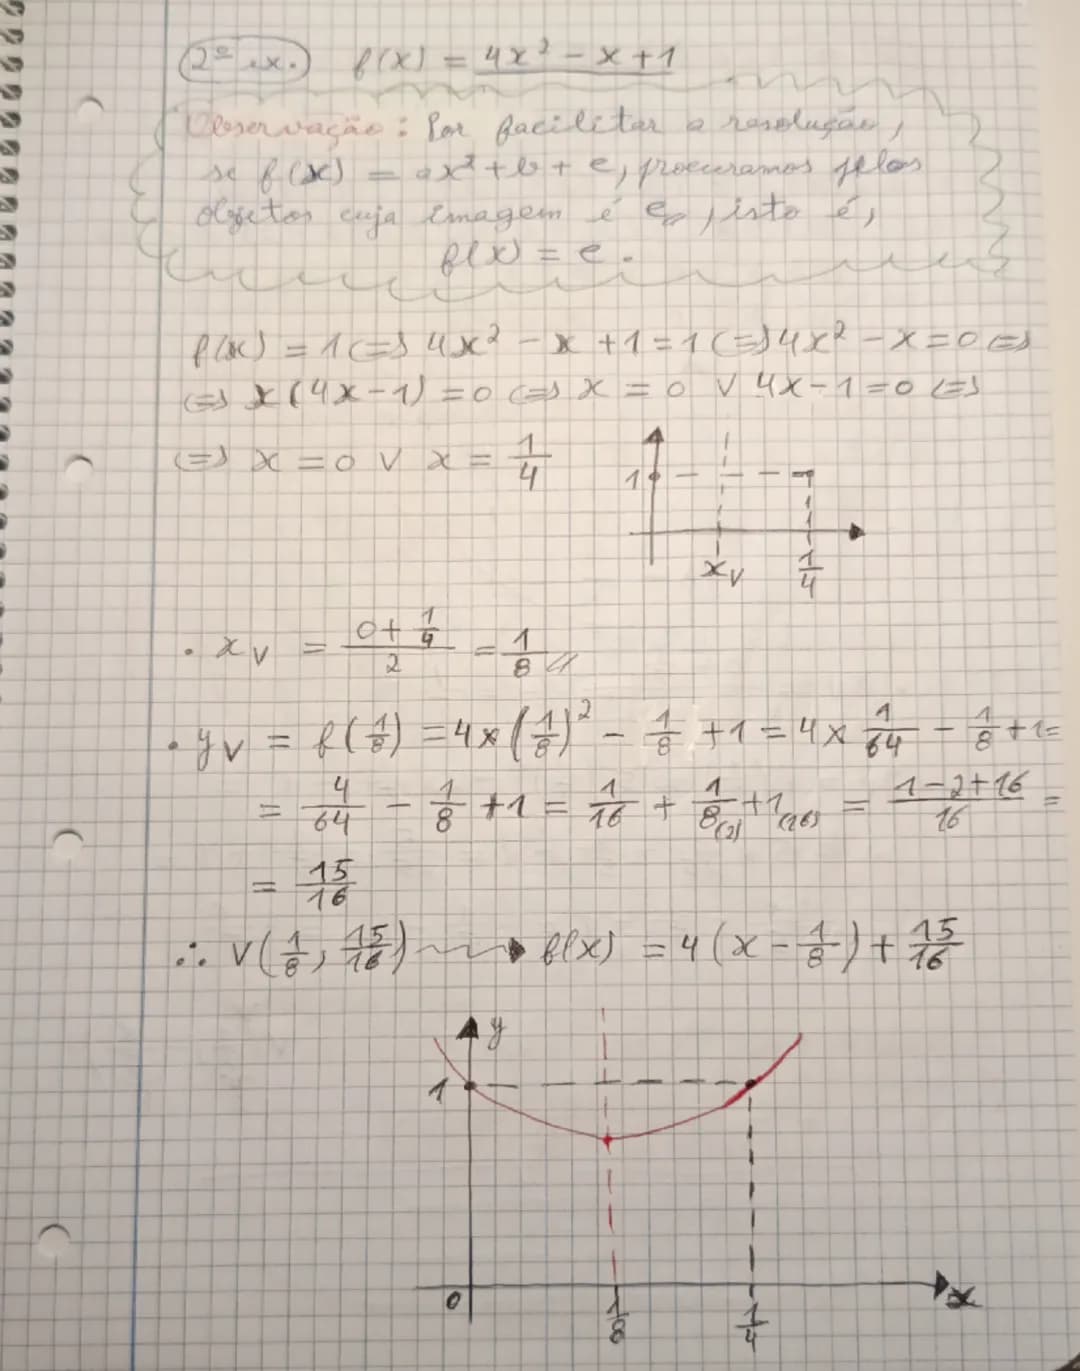 2º ex. f(x) = 4x² - x + 1
Observação: Por facilitar a resolução,
se f(x) = ax² + b + c, procuramos pelos
objetos cuja imagem é c, isto é,
f(x) = c.
f(x) = 1 (=) 4x² - x + 1 = 1 (=) 4x² - x = 0 (=)
(=) x(4x-1) = 0 (=) x = 0 ∨ 4x - 1 = 0 (=)
(=) x = 0 ∨ x = 1/4
1
x_v 1/4
• x_v = (0 + 1/4)/2 = 1/8 //
• y_v = f(1/8) = 4 × (1/8)² - 1/8 + 1 = 4 × 1/64 - 1/8 + 1 =
= 4/64 - 1/8 + 1 = 1/16 + 1/8(2) + 1(16) = (1 - 2 + 16)/16 =
= 15/16
∴ V(1/8, 15/16) ⟿ f(x) = 4(x - 1/8) + 15/16
y
1
0 1/8 1/4 x